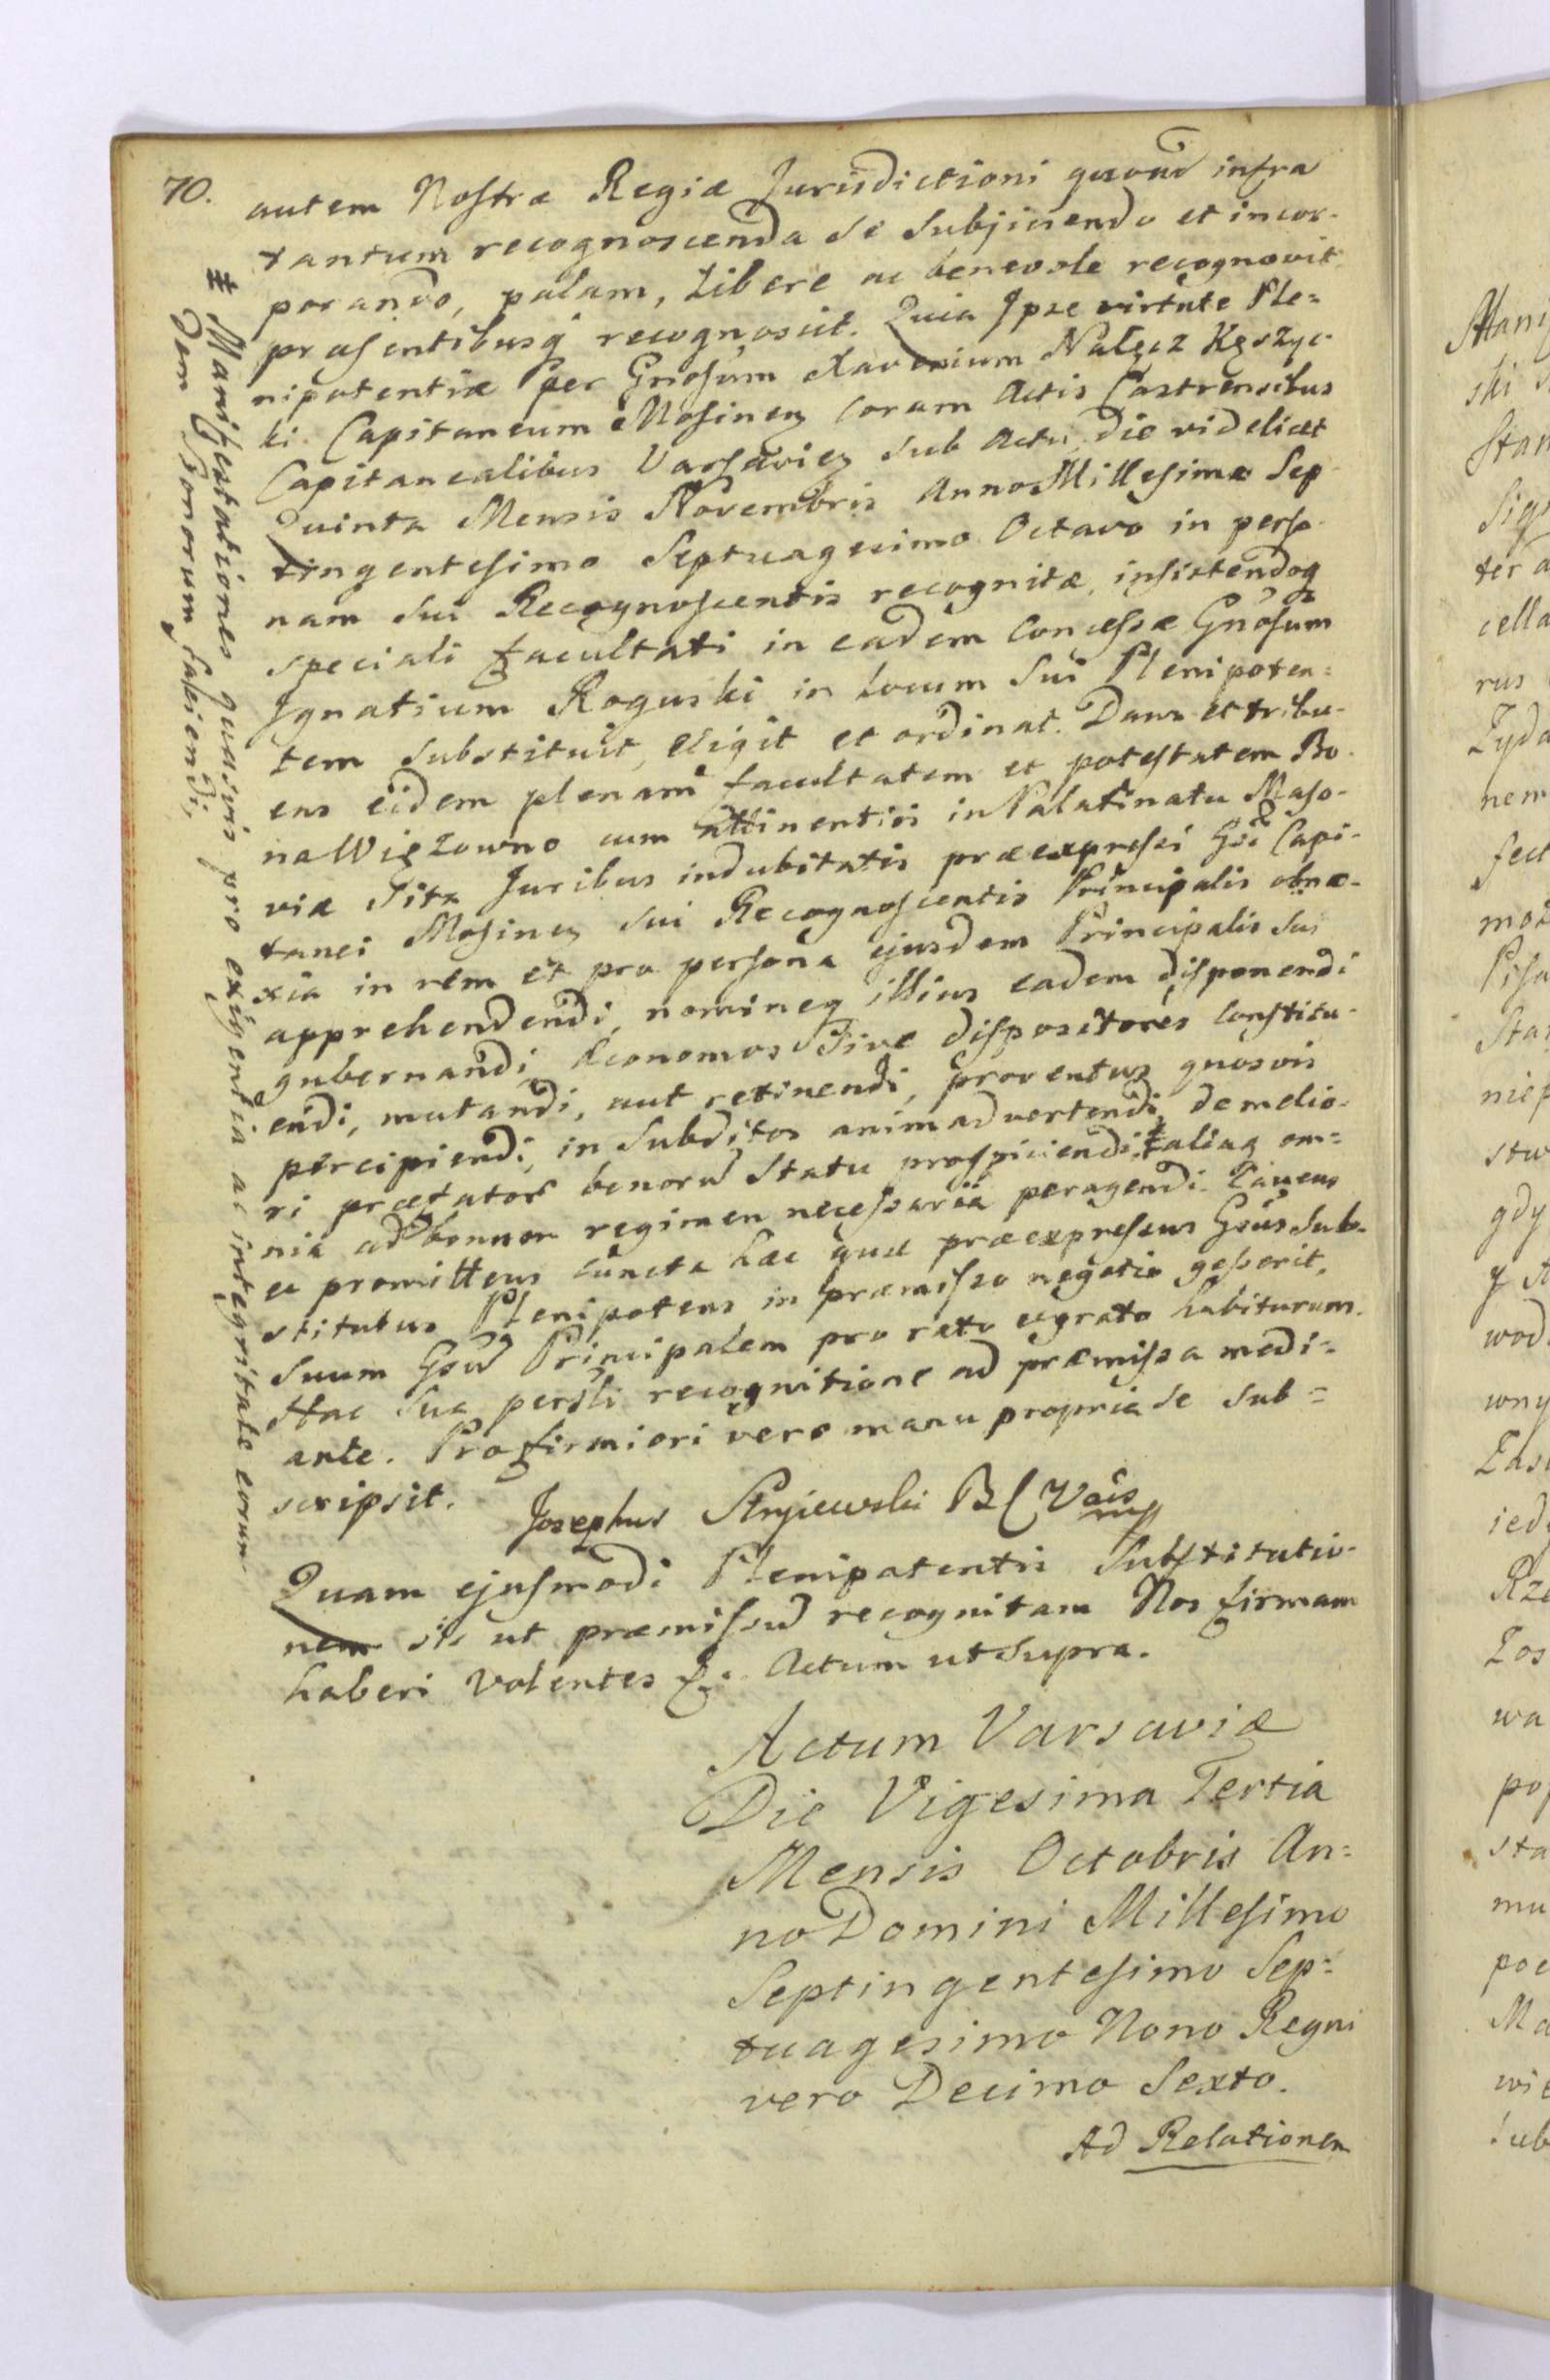 70.
autem Nostræ Regiæ Jurisdictioni quoad infra
tantum recognoscenda se Subjiciendo et incor-
porando, palam, Libere ac benevole recognovit
præsentibusq recognoscit. Quia Ipse virtute Ple=
nipotentiæ per Gnosum Xaverium Nałęcz Kęszyc-
ki Capitaneum Mosinen Coram Actis Castrensibus
Capitanealibus Varsavien sub Actu, die videlicet
Quinta Mensis Novembris Anno Millesimo Sep
tingentesimo Septuagesimo Octavo in perso-
nam sui Recognoscentis recognitæ, insistendoq
speciali facultati in eadem Concessæ Gnosum
Ignatium Roguski in Locum Sui Plenipoten=
tem Substituit, eligit et ordinat. Dans et tribu-
ens eidem plenam facultatem et potestatem Bo-
na Więzowno cum Attinentiis in Palatinatu Maso-
viæ Sita Juribus indubitatis præexpressi Gsi Capi-
tanei Mosinen sui Recognoscentis Principalis obno-
xia in rem et pro persona ejusdem Principalis sui
apprehendendi, nomineq illius eadem disponendi
gubernandi, Æconomos Sive dispositores Constitu-
endi, mutandi, aut retinendi, proventus quosvis
percipiendi, in Subditos animadvertendi, de melio-
ri præfator bonoru Statu prospiciendi, aliaq om=
nia ad bonum regimen necessaria peragendi. Cavens
et promittens cuncta hæc quæ præexpressus Gsus Sub-
stitutus Plenipotens in præmisso negotio gesserit,
Suum Gsu Principalem pro rato et grato habiturum.
Hac Sua persli recognitione ad præmissa medi=
ante. Pro firmiori vero manu propria se Sub=
scripsit.
Josephus Stryiewski B C Vais
Quam ejusmodi Plenipotentis Substitutio-
nem sic ut præmissu recognitam Nos firmam
haberi volentes &. Actum ut Supra.
Actum Varsaviæ
Die Vigesima Tertia
Mensis Octobris An=
no Domini Millesimo
Septingentesimo Sep=
tuagesimo Nono Regni
vero Decimo Sexto.
Ad Relationem
Manifestationes quasvis pro exigentia ac integritate eorum-
dem Bonorum faciendi,